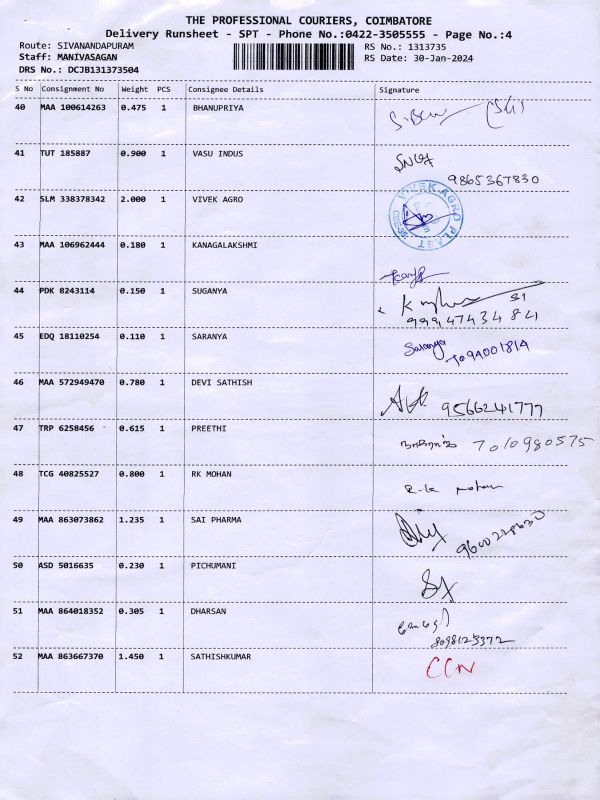 THE PROFESSIONAL COURIERS, COIMBATORE
Delivery Runsheet - SPT - Phone No.:0422-3505555 - Page No.:4
Route: SIVANANDAPURAM RS No.: 1313735
Staff: MANIVASAGAN RS Date: 30-Jan-2024
DRS No.: DCJB131373504
S No Consignment No Weight PCS Consignee Details Signature
40 MAA 100614263 0.475 1 BHANUPRIYA
41 TUT 185887 0.900 1 VASU INDUS
9865367830
42 SLM 338378342 2.000 1 VIVEK AGRO
VIVEK AGRO PLAST
43 MAA 106962444 0.180 1 KANAGALAKSHMI
44 PDK 8243114 0.150 1 SUGANYA
9994743484
45 EDQ 18110254 0.110 1 SARANYA
Saranya
7094001814
46 MAA 572949470 0.780 1 DEVI SATHISH
9566241777
47 TRP 6258456 0.615 1 PREETHI
7010980575
48 TCG 40825527 0.800 1 RK MOHAN
R-K Mohan
49 MAA 863073862 1.235 1 SAI PHARMA
50 ASD 5016635 0.230 1 PICHUMANI
51 MAA 864018352 0.305 1 DHARSAN
8098123372
52 MAA 863667370 1.450 1 SATHISHKUMAR
CCN